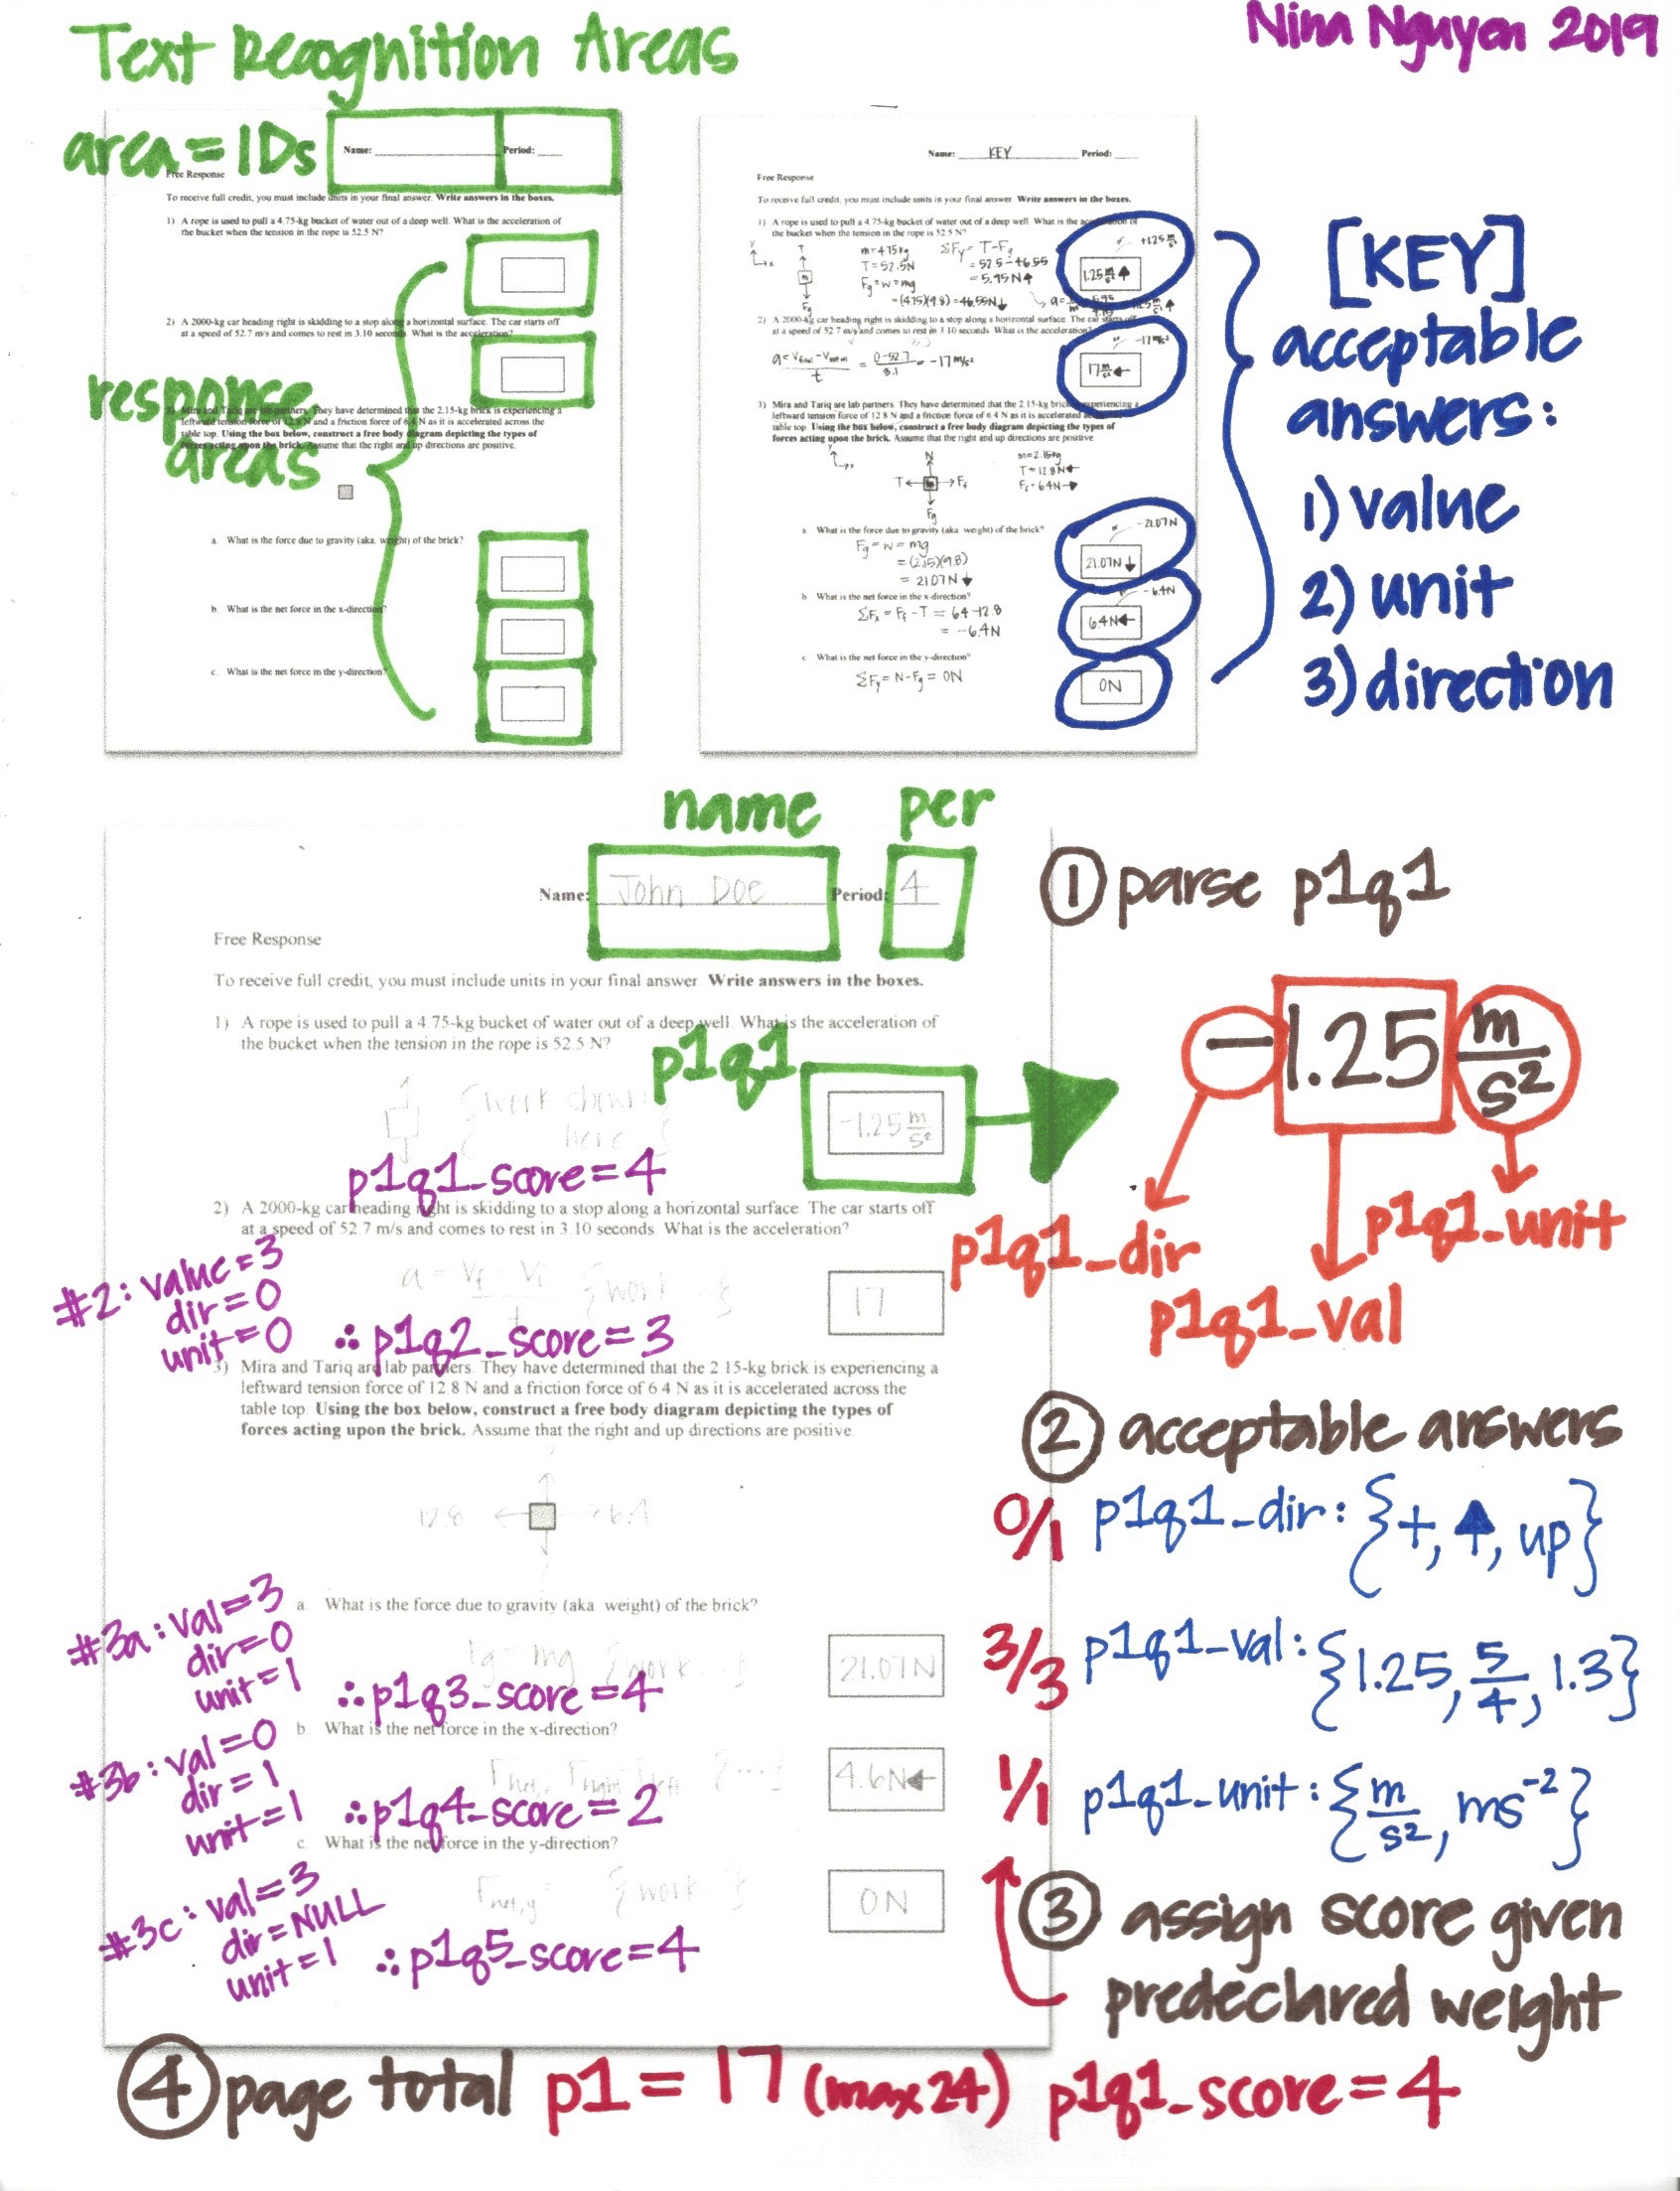 Text Recognition Areas
Nina Nguyen 2019
area = IDs
Name: Period:
Free Response
To receive full credit, you must include units in your final answer. Write answers in the boxes.
1) A rope is used to pull a 4.75-kg bucket of water out of a deep well. What is the acceleration of
the bucket when the tension in the rope is 52.5 N?
2) A 2000-kg car heading right is skidding to a stop along a horizontal surface. The car starts off
at a speed of 52.7 m/s and comes to rest in 3.10 seconds. What is the acceleration?
response
areas
3) Mira and Tariq are lab partners. They have determined that the 2.15-kg brick is experiencing a
leftward tension force of 12.8 N and a friction force of 6.4 N as it is accelerated across the
table top. Using the box below, construct a free body diagram depicting the types of
forces acting upon the brick. Assume that the right and up directions are positive.
a. What is the force due to gravity (aka. weight) of the brick?
b. What is the net force in the x-direction?
c. What is the net force in the y-direction?
Name: KEY Period:
Free Response
To receive full credit, you must include units in your final answer. Write answers in the boxes.
1) A rope is used to pull a 4.75-kg bucket of water out of a deep well. What is the acceleration of
the bucket when the tension in the rope is 52.5 N?
y
x
T
m
Fg
m=4.75kg
T=52.5N
Fg=w=mg
=(4.75)(9.8)=46.55N↓
ΣFy=T-Fg
=52.5-46.55
=5.95N↑
+1.25 m/s²
1.25 m/s² ↑
2) A 2000-kg car heading right is skidding to a stop along a horizontal surface. The car starts off
at a speed of 52.7 m/s and comes to rest in 3.10 seconds. What is the acceleration?
= (0-52.7)/3.1 = -17 m/s²
-17 m/s²
17 m/s² ←
3) Mira and Tariq are lab partners. They have determined that the 2.15-kg brick is experiencing a
leftward tension force of 12.8 N and a friction force of 6.4 N as it is accelerated across the
table top. Using the box below, construct a free body diagram depicting the types of
forces acting upon the brick. Assume that the right and up directions are positive.
y
x
N
T ← m → Ff
Fg
m=2.15kg
T=12.8N←
Ff=6.4N→
a. What is the force due to gravity (aka weight) of the brick?
Fg=w=mg
=(2.15)(9.8)
= 21.07N↓
-21.07N
21.07N↓
b. What is the net force in the x-direction?
ΣFx=Ff-T=6.4-12.8
= -6.4N
-6.4N
6.4N←
c. What is the net force in the y-direction?
ΣFy=N-Fg=0N
0N
[KEY]
acceptable
answers:
1) value
2) unit
3) direction
name per
Name: John Doe Period: 4
Free Response
To receive full credit, you must include units in your final answer. Write answers in the boxes.
1) A rope is used to pull a 4.75-kg bucket of water out of a deep well. What is the acceleration of
the bucket when the tension in the rope is 52.5 N?
p1q1
{work shown
here }
-1.25 m/s²
p1q1_score=4
2) A 2000-kg car heading right is skidding to a stop along a horizontal surface. The car starts off
at a speed of 52.7 m/s and comes to rest in 3.10 seconds. What is the acceleration?
#2: value=3
dir=0
unit=0
{work }
17
∴ p1q2_score=3
3) Mira and Tariq are lab partners. They have determined that the 2.15-kg brick is experiencing a
leftward tension force of 12.8 N and a friction force of 6.4 N as it is accelerated across the
table top. Using the box below, construct a free body diagram depicting the types of
forces acting upon the brick. Assume that the right and up directions are positive.
12.8 ← → 6.4
a. What is the force due to gravity (aka weight) of the brick?
#3a: val=3
dir=0
unit=1
Fg=mg {work }
21.07N
∴p1q3_score=4
b. What is the net force in the x-direction?
#3b: val=0
dir=1
unit=1
4.6N←
∴p1q4_score=2
c. What is the net force in the y-direction?
#3c: val=3
dir=NULL
unit=1
Fnet,y= {work }
0N
∴p1q5_score=4
① parse p1q1
-1.25 m/s²
p1q1_dir
p1q1_val
p1q1_unit
② acceptable answers
0/1 p1q1_dir: {+, ↑, up}
3/3 p1q1_val: {1.25, 5/4, 1.3}
1/1 p1q1_unit: {m/s², ms⁻²}
③ assign score given
predeclared weight
④ page total p1 = 17 (max 24) p1q1_score=4